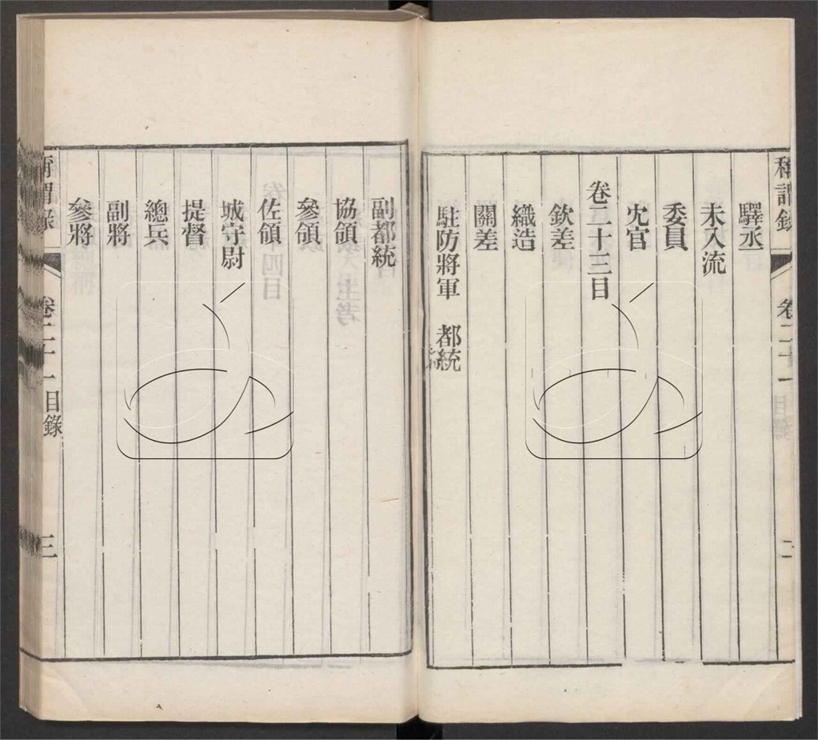 稱謂錄 卷二十一 目錄 二
驛丞
未入流
委員
冗官
卷二十三目
欽差
織造
關差
駐防將軍 都統
副都統
協領
參領
佐領
城守尉
提督
總兵
副將
參將
稱謂錄 卷二十一 目錄 三